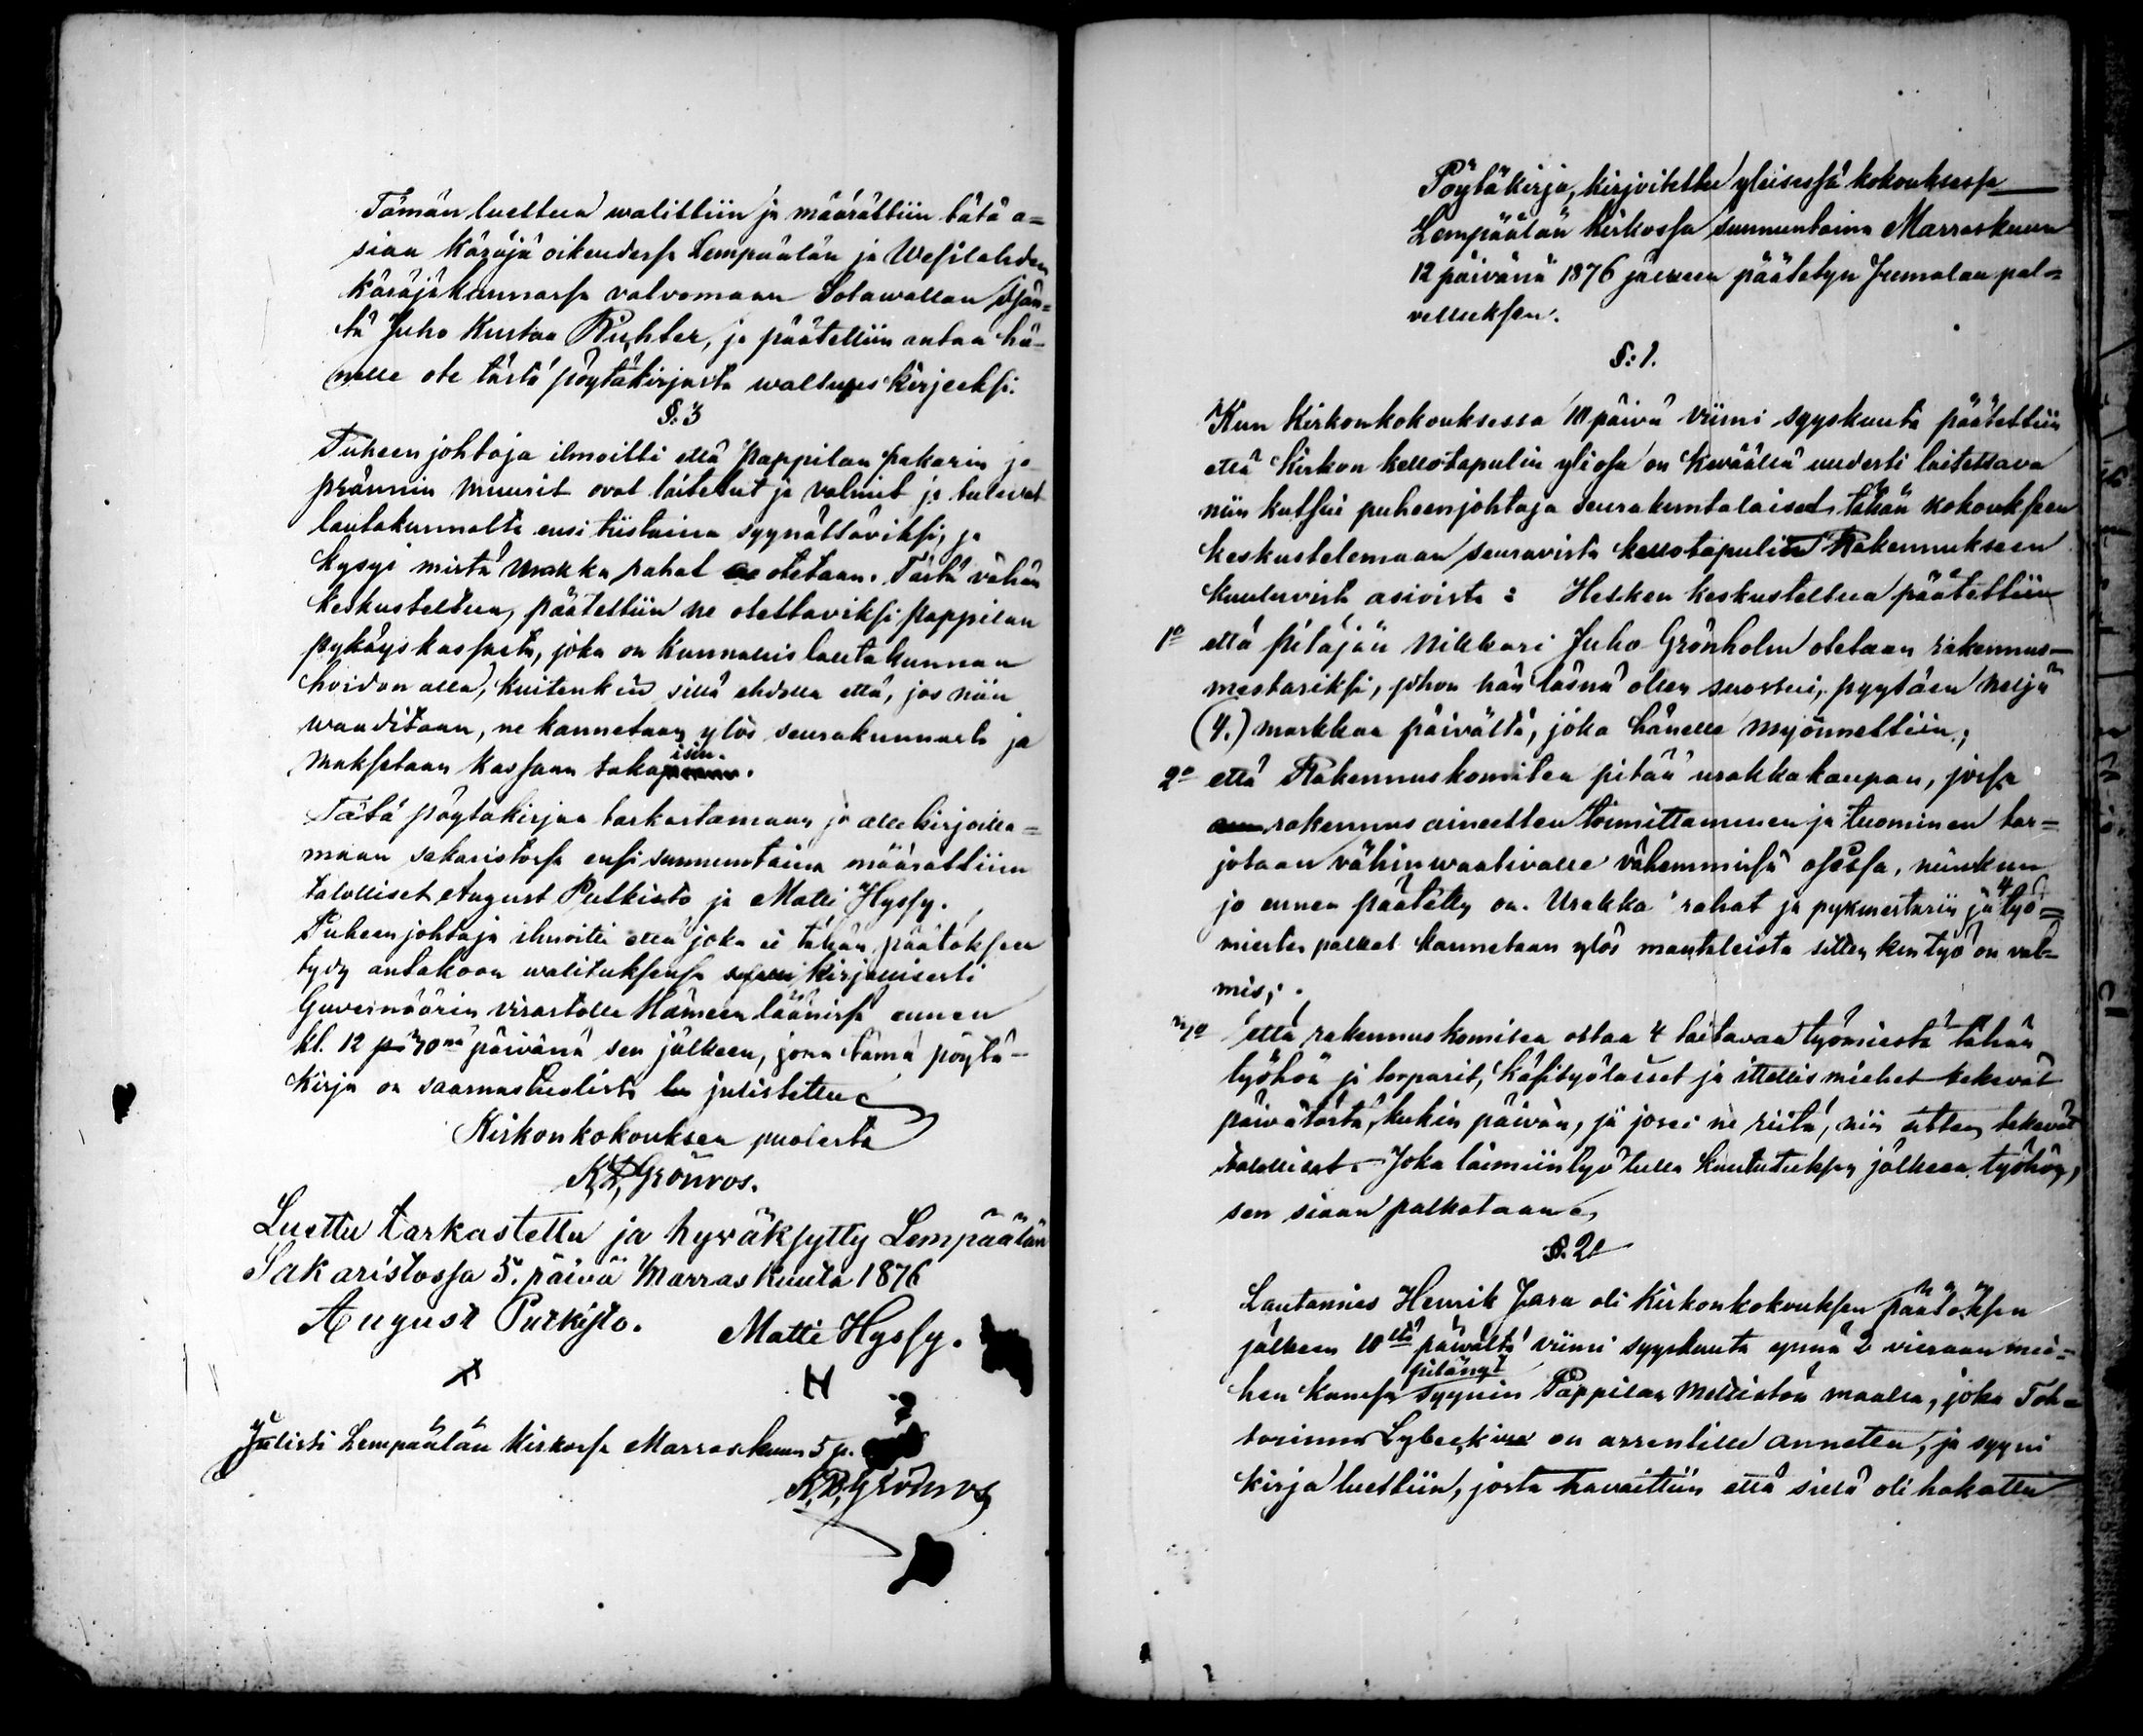 Tämän luettua walittiin ja määrättiin tätä a=
siaa Käräjä oikeudessa Lempäälän ja Wesilahden
Käräjäkunnassa valvomaan Sotawallan Isän=
tä Juho Kustaa Richter, ja päätettiin antaa hä-
nelle ote tästä pöytäkirjasta waltuus kirjeeksi.
§. 3
Puheenjohtaja ilmoitti että Pappilan pakarin ja
prännin muurit ovat laitetut ja valmiit ja tulevat
lautakunnalta ensi tiistaina syynättäviksi, ja
kysyi mistä Urakka rahat otetaan. Tästä vähän
keskusteltua, päätettiin ne otettaviksi pappilan
pykäyskassasta, joka on Kunnallis lautakunnan
hoidon alla, kuitenkin sillä ehdolla että, jos niin
waaditaan, ne kannetaan ylös seurakunnasta ja
maksetaan kassaan takaisin.
Tätä pöytäkirjaa tarkastamaan ja allekirjoitta=
maan sakaristossa ensi sunnuntaina määrättiin
talolliset August Pulkisto ja Matti Hyssy.
Puheenjohtaja ilmoitti että joka ei tähän päätöksen
tydy antakoon walituksensa kirjallisesti
Guvernöörin virastolle Hämeen läänissä ennen
kl. 12 p. 30nä päivänä sen jälkeen, jona tämä pöytä-
kirja on saarnastuolista julistettu
Kirkonkokouksen puolesta
K. D. Grönros.
Luettu tarkastettu ja hyväksytty Lempäälän
Sakaristossa 5. päivä Marraskuuta 1876
August Pulkisto. Matti Hyssy.
Julisti Lempäälän Kirkossa Marraskuun 5 p.
K. D. Grönros
Pöytäkirja, kirjoitettu yleisessä kokouksessa
Lempäälän kirkossa sunnuntaina Marraskuun
12 päivänä 1876 jälkeen päätetyn Jumalan pal=
veluksen.
§: 1.
Kun Kirkonkokouksessa 10 päivä viimi syyskuuta päätettiin
että kirkon kellotapulin yliosa on Keväällä uudesti laitettava
niin kutsui puheenjohtaja seurakuntalaiset tähän kokoukseen
keskustelemaan seuravista kellotapulin Rakennukseen
kuuluvista asioista: Hetken keskusteltua päätettiin
1o että pitäjän Nikkari Juho Grönholm otetaan rakennus-
mestariksi, johon hän läsnä ollen suostui, pyytäen neljä
(4.) markkaa päivältä, joka hänelle myönnettiin;
2o että Rakennuskomitea pitää urakkakaupan, jossa
rakennus aineitten toimittaminen ja tuominen tar=
jotaan vähinwaativalle vähemmissä osissa, niinkuin
jo ennen päätetty on. Urakka rahat ja pykmestarin ja 4 työ=
miesten palkat kannetaan ylös manttaleista sitten kun työ on val=
mis;
3o että rakennuskomitea ottaa 4 taitavaa työmiestä tähän
työhön ja torparit, käsityöläiset ja itellismiehet tekevät
päivätöitä, kukin päivän, ja josei ne riitä, niin sitten tekevät
talolliset. Joka laimiinlyö tulla kuulutuksen jälkeen työhön,
sen siaan palkataan
§. 2
Lautamies Henrik Jara oli Kirkonkokouksen päätöksen
jälkeen 10ltä päivältä viimi syyskuuta ynnä 2 vieraan mie-
hen kanssa pitänyt syynin Pappilan Mettistön maalla, joka Toh-
torinna Lybeck on arrentille annettu, ja syyni
kirja luettiin, josta havaittiin että siellä oli hakattu